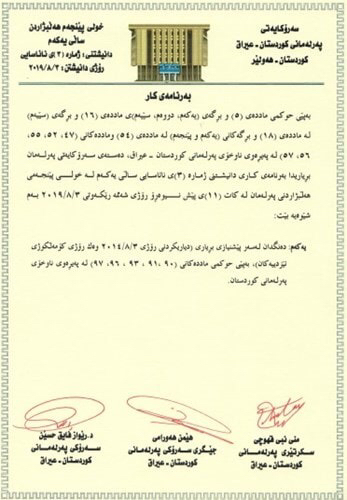 سەرۆکایەتی
پەرلەمانی کوردستان - عیراق
کوردستان - هەولێر
خولی پێنجەم هەڵبژاردن
ساڵی یەکەم
دانیشتنی: ژمارە (٣)ی نائاسایی
ڕۆژی دانیشتن: ٢٠١٩/٨/٣
بەرنامەی کار
بەپێی حوکمی ماددەی (٥) و بڕگەی (یەکەم، دووەم، سێیەم)ی ماددەی (١٦) و بڕگەی (سێیەم)
لە ماددەی (١٨) و بڕگەکانی (یەکەم و پێنجەم) لە ماددەی (٥٤) وماددەکانی (٤٧، ٥٢، ٥٥،
٥٦، ٥٧) لە پەیڕەوی ناوخۆی پەرلەمانی کوردستان - عیراق، دەستەی سەرۆکایەتی پەرلەمان
بڕیاریدا بەرنامەی کاری دانیشتنی ژمارە (٣)ی نائاسایی ساڵی یەکەم لە خولی پێنجەمی
هەڵبژاردنی پەرلەمان لە کات (١١)ی پێش نیوەڕۆ ڕۆژی شەممە ڕێکەوتی ٢٠١٩/٨/٣ بەم
شێوەیە بێت:
یەکەم: دەنگدان لەسەر پێشنیازی بڕیاری (دیاریکردنی ڕۆژی ٢٠١٤/٨/٣ وەک ڕۆژی کۆمەڵکوژی
ئێزدییەکان)، بەپێی حوکمی ماددەکانی (٩٠، ٩١، ٩٣، ٩٦، ٩٧) لە پەیڕەوی ناوخۆی
پەرلەمانی کوردستان.
منی نبی قهوچی
سکرتێری پەرلەمانی
کوردستان - عیراق
هێمن هەورامی
جێگری سەرۆکی پەرلەمانی
کوردستان - عیراق
د.ڕێواز فایق حسێن
سەرۆکی پەرلەمانی
کوردستان - عیراق